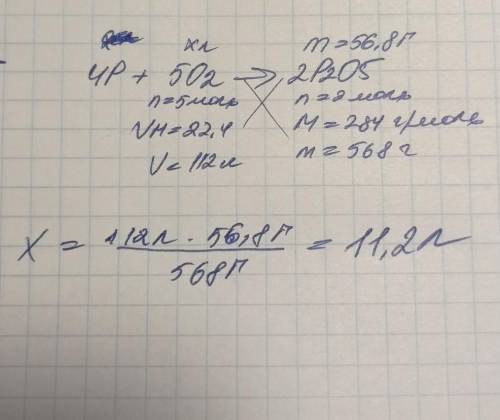 xл m=56,8г
4P + 5O2 → 2P2O5
n=5моль n=2моль
VH=22,4 M=284 г/моль
V=112л m=568 г
X = 112л · 56,8г / 568г = 11,2л